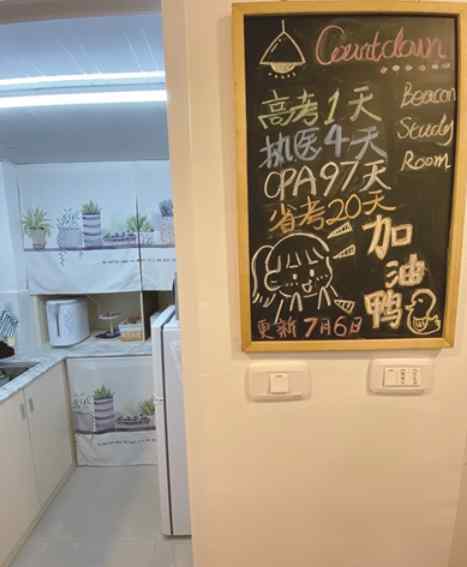 Countdown
高考1天
执医4天
CPA97天
省考20天
Beacon
Study
Room
加
油
鸭
更新7月6日